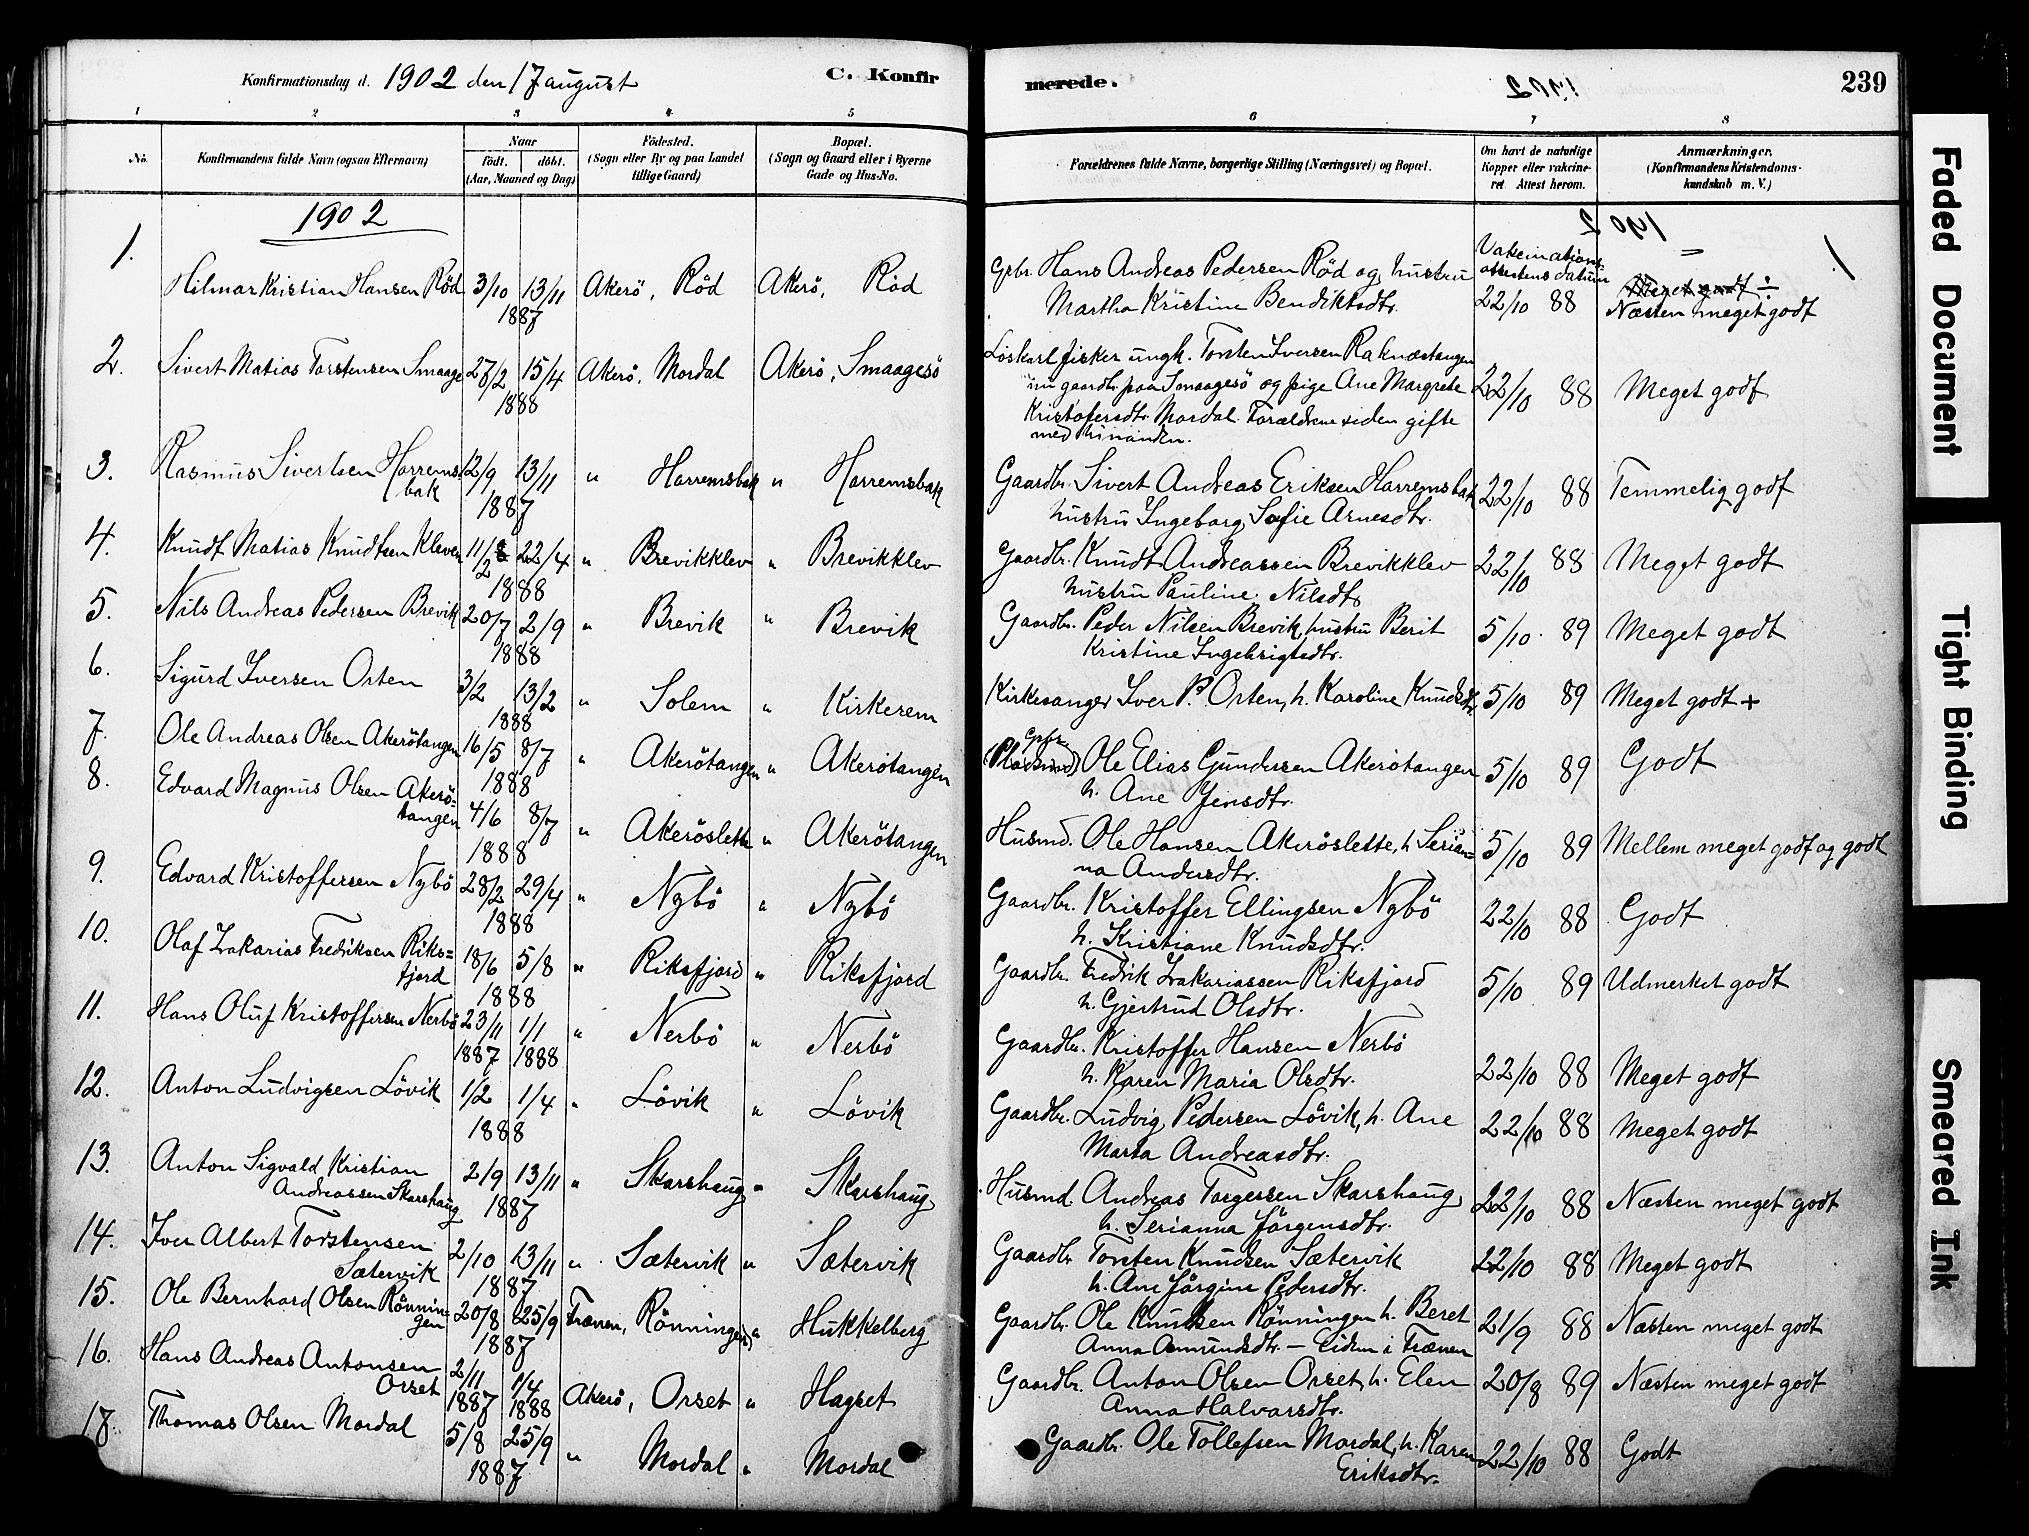 Konfirmationsdag d. 1902 den 17 august C. Konfirmerede. 1902 239
1 2 3 4 5 6 7 8
No. Konfirmandens fulde Navn (ogsaa Efternavn) Naar født. døbt. (Aar, Maaned og Dag) Födested. (Sogn eller By og paa Landet tillige Gaard) Bopæl. (Sogn og Gaard eller i Byerne Gade og Hus-No. Forældrenes fulde Navne, borgerlige Stilling (Næringsvei) og Bopæl. Om havt de naturlige Kopper eller vakcineret Attest herom. Anmærkninger. (Konfirmandens Kristendomskundskab m. V.)
1902
1. Hilmar Kristian Hansen Röd 3/10 13/11 1887 Akerö, Röd Akerö, Röd Gsbr. Hans Andreas Pedersen Röd og hustru
Martha Kristine Bendiktsdtr. Vakcinationsattestens datum 22/10 88 Meget godt ÷
Næsten meget godt
2. Sivert Matias Torstensen Smaage 27/2 15/4 1888 Akerö, Mordal Akerö, Smaagesö Löskarl fisker ungk. Torsten Iversen Raknæstangen
nu gaardbr. paa Smaagesö og pige Ane Margrete
Kristofersdtr. Mordal. Forældrene siden gifte
med hinanden. 22/10 88 Meget godt
3. Rasmus Sivertsen Harremsbak 12/9 13/11 1887 " Harremsbak " Harremsbak Gaardbr. Sivert Andreas Eriksen Harremsbak
hustru Ingeborg Sofie Arnesdtr. 22/10 88 Temmelig godt
4. Knudt Matias Knudtsen Kleven 11/2 22/4 1888 " Brevikklev " Brevikklev Gaardbr. Knudt Andreassen Brevikklev
hustru Pauline Nilsdtr 22/10 88 Meget godt
5. Nils Andreas Pedersen Brevik 20/7 2/9 1888 " Brevik " Brevik Gaardbr. Peder Nilsen Brevik, hustru Berit
Kristine Ingebrigtsdtr. 5/10. 89 Meget godt
6. Sigurd Iversen Orten 3/2 13/2 1888 " Solem " Kirkerem Kirkesanger Iver P. Orten, h. Karoline Knudsdtr. 5/10 89 Meget godt +
7. Ole Andreas Olsen Akerötangen 16/5 8/7 1888 " Akerötangen " Akerötangen (Pladsmd) Ole Elias Gundersen Akerötangen
h. Ane Jensdtr. 5/10 89 Godt
8. Edvard Magnus Olsen Akerötangen 4/6 8/7 1888 " Akeröslette " Akerötangen Husmd. Ole Hansen Akeröslette, h Serianna
Andersdtr. 5/10 89 Mellem meget godt og godt
9. Edvard Kristoffersen Nybö 28/2 29/4 1888 " Nybö " Nybö Gaardbr. Kristoffer Ellingsen Nybö
h. Kristiane Knudsdtr. 22/10 88 Godt
10. Olaf Zakarias Fredriksen Riksfjord 18/6 5/8 1888 " Riksfjord " Riksfjord Gaardbr. Fredrik Zakariassen Riksfjord
h. Gjertrud Olsdtr. 5/10 89 Udmerket godt
11. Hans Oluf Kristoffersen Nerbö 23/11 1887 1/1 1888 " Nerbö " Nerbö Gaardbr. Kristoffer Hansen Nerbö
h. Karen Maria Olsdtr. 22/10 88 Meget godt
12. Anton Ludvigsen Lövik 1/2 1/4 1888 " Lövik " Lövik Gaardbr. Ludvig Pedersen Lövik, h. Ane
Marta Andreasdtr. 22/10 88 Meget godt
13. Anton Sigvald Kristian Andreassen Skarshaug 2/9 13/11 1887 " Skarshaug " Skarshaug Husmd. Andreas Torgersen Skarshaug
h. Serianna Jörgensdtr. 22/10 88 Næsten meget godt
14. Iver Albert Torstensen Sætervik 2/10 13/11 1887 " Sætervik " Sætervik Gaardbr. Torsten Knudsen Sætervik
h. Ane Jörgine Pedersdtr. 22/10 88 Meget godt
15. Ole Bernhard Olsen Rönningen 20/8 25/9 1887 Frænen, Rönningen " Hukkelberg Gaardbr. Ole Knutsen Rönningen h. Beret
Anna Asmundsdtr. — Eidem i Frænen 21/9 88 Næsten meget godt
16. Hans Andreas Antonsen Orset 2/11 1887 1/4 1888 Akerö, Orset " Hagset Gaardbr. Anton Olsen Orset, h. Elen
Anna Halvorsdtr. 20/8 89 Næsten meget godt
17. Thomas Olsen Mordal 5/8 25/9 1887 " Mordal " Mordal Gaardbr. Ole Tollefsen Mordal, h. Karen
Eriksdtr. 22/10 88 Godt
Faded Document
Tight Binding
Smeared Ink